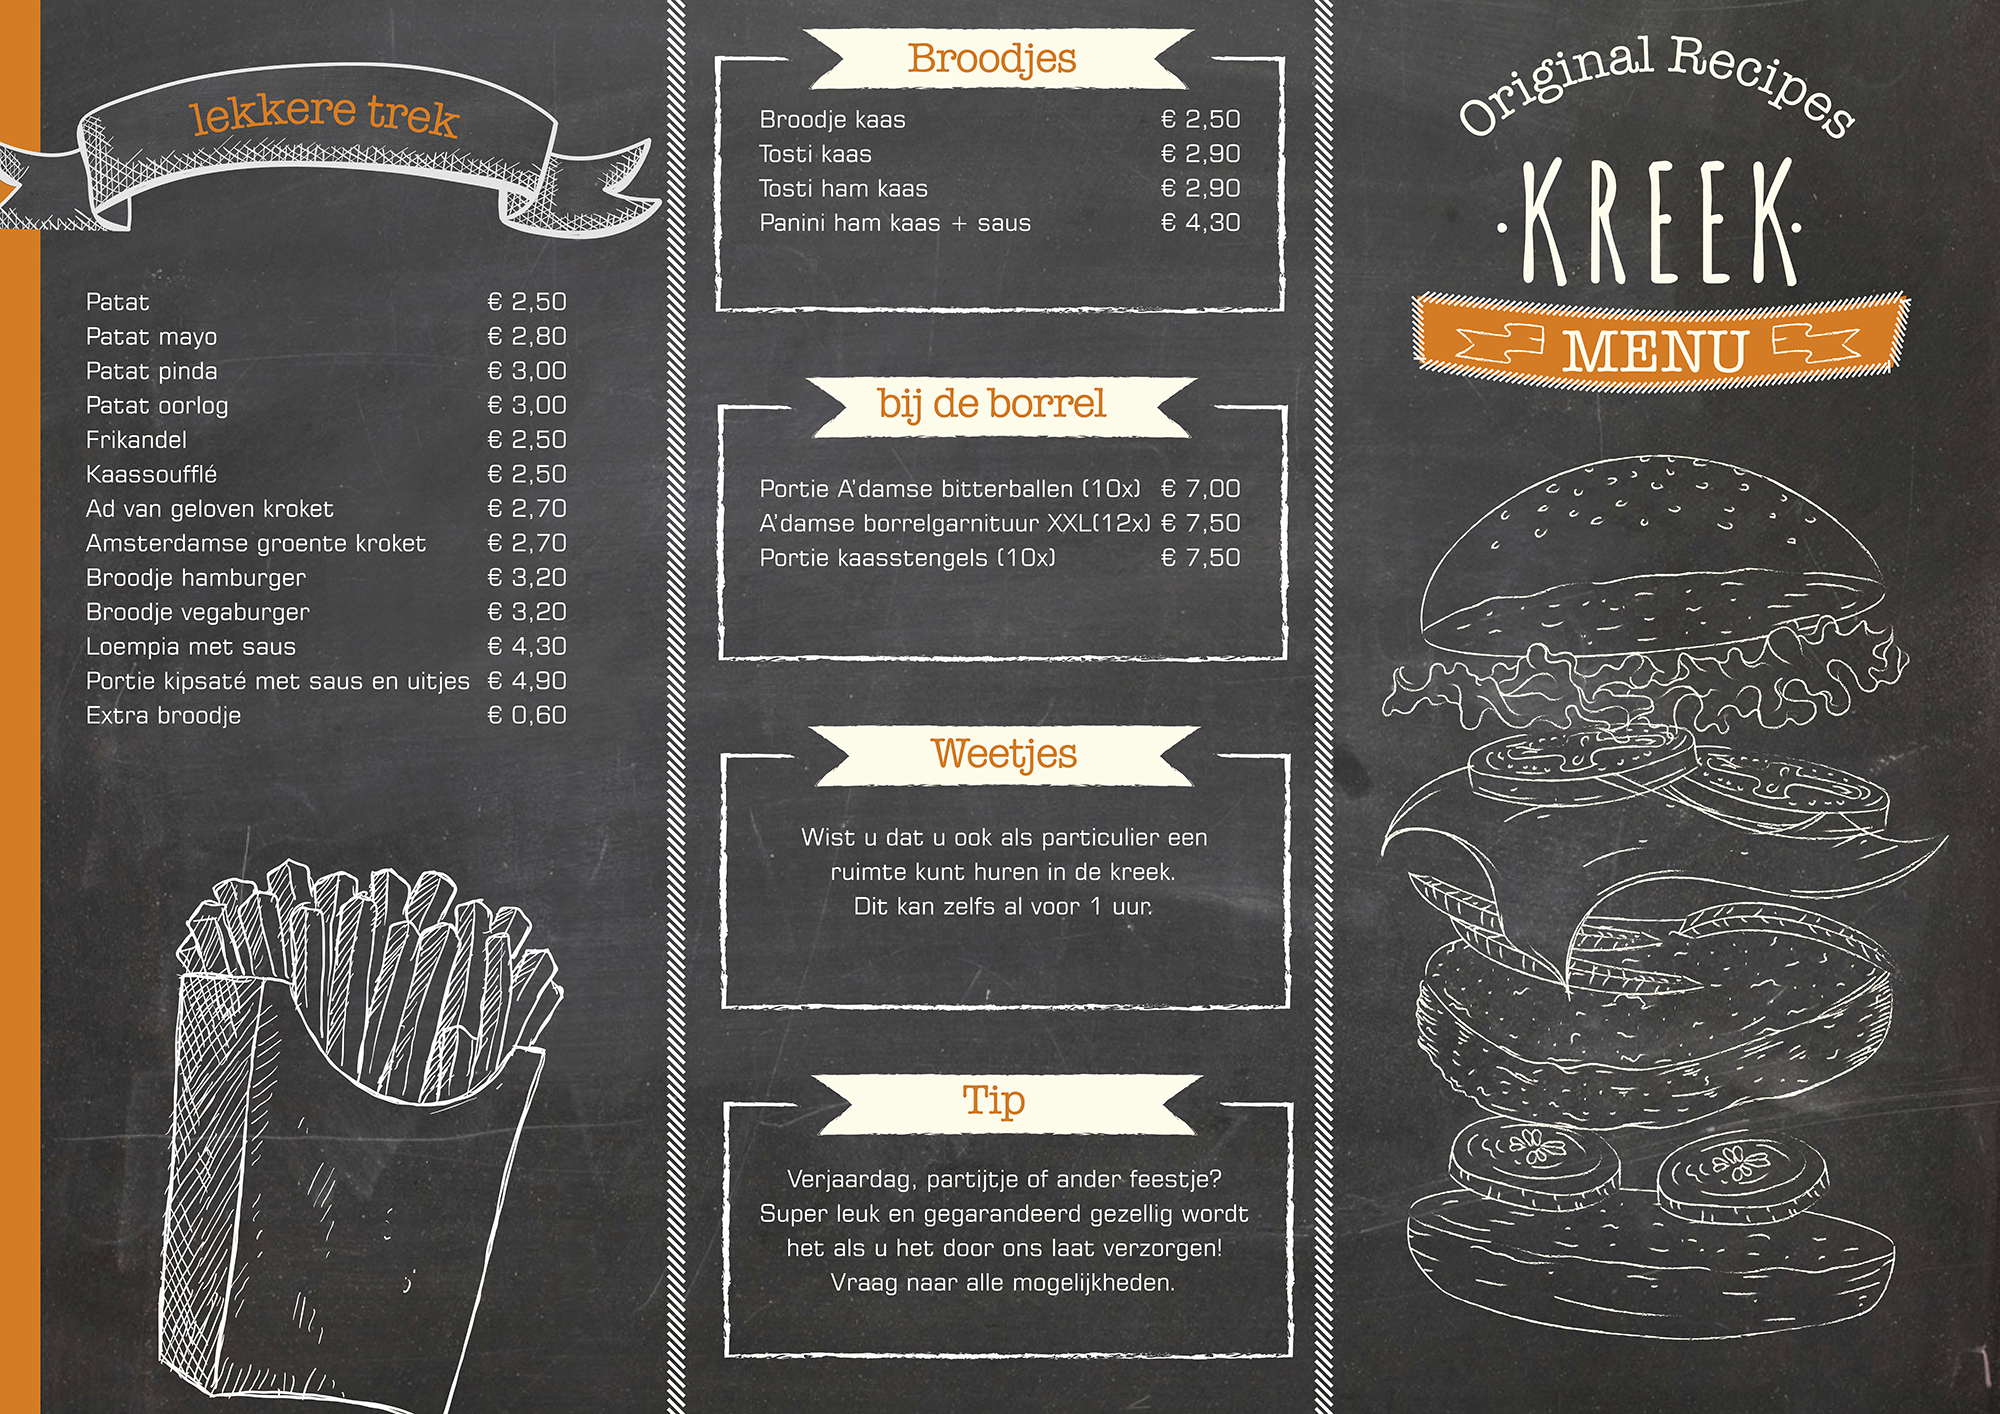 lekkere trek
Patat € 2,50
Patat mayo € 2,80
Patat pinda € 3,00
Patat oorlog € 3,00
Frikandel € 2,50
Kaassoufflé € 2,50
Ad van geloven kroket € 2,70
Amsterdamse groente kroket € 2,70
Broodje hamburger € 3,20
Broodje vegaburger € 3,20
Loempia met saus € 4,30
Portie kipsaté met saus en uitjes € 4,90
Extra broodje € 0,60
Broodjes
Broodje kaas € 2,50
Tosti kaas € 2,90
Tosti ham kaas € 2,90
Panini ham kaas + saus € 4,30
bij de borrel
Portie A'damse bitterballen (10x) € 7,00
A'damse borrelgarnituur XXL(12x) € 7,50
Portie kaasstengels (10x) € 7,50
Weetjes
Wist u dat u ook als particulier een
ruimte kunt huren in de kreek.
Dit kan zelfs al voor 1 uur.
Tip
Verjaardag, partijtje of ander feestje?
Super leuk en gegarandeerd gezellig wordt
het als u het door ons laat verzorgen!
Vraag naar alle mogelijkheden.
Original Recipes
·KREEK·
MENU